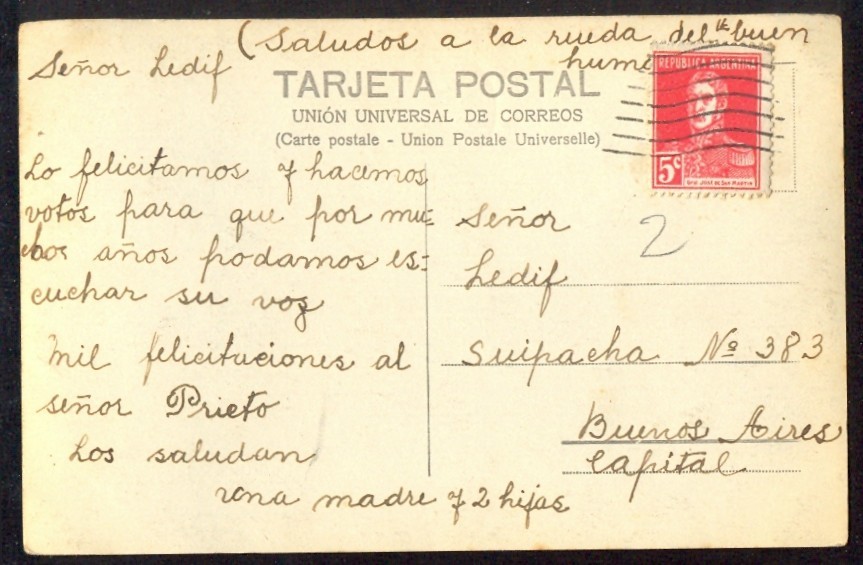 (Saludos a la rueda del buen
humo
Señor Ledif
TARJETA POSTAL
UNIÓN UNIVERSAL DE CORREOS
(Carte postale - Union Postale Universelle)
REPUBLICA ARGENTINA
5c
GRAL JOSE DE SAN MARTIN
Lo felicitamos y hacemos
votos para que por mu=
chos años podamos es=
cuchar su voz
Mil felicitaciones al
señor Prieto
Los saludan
una madre y 2 hijas
2
Señor
Ledif
Suipacha Nº 383
Buenos Aires
Capital